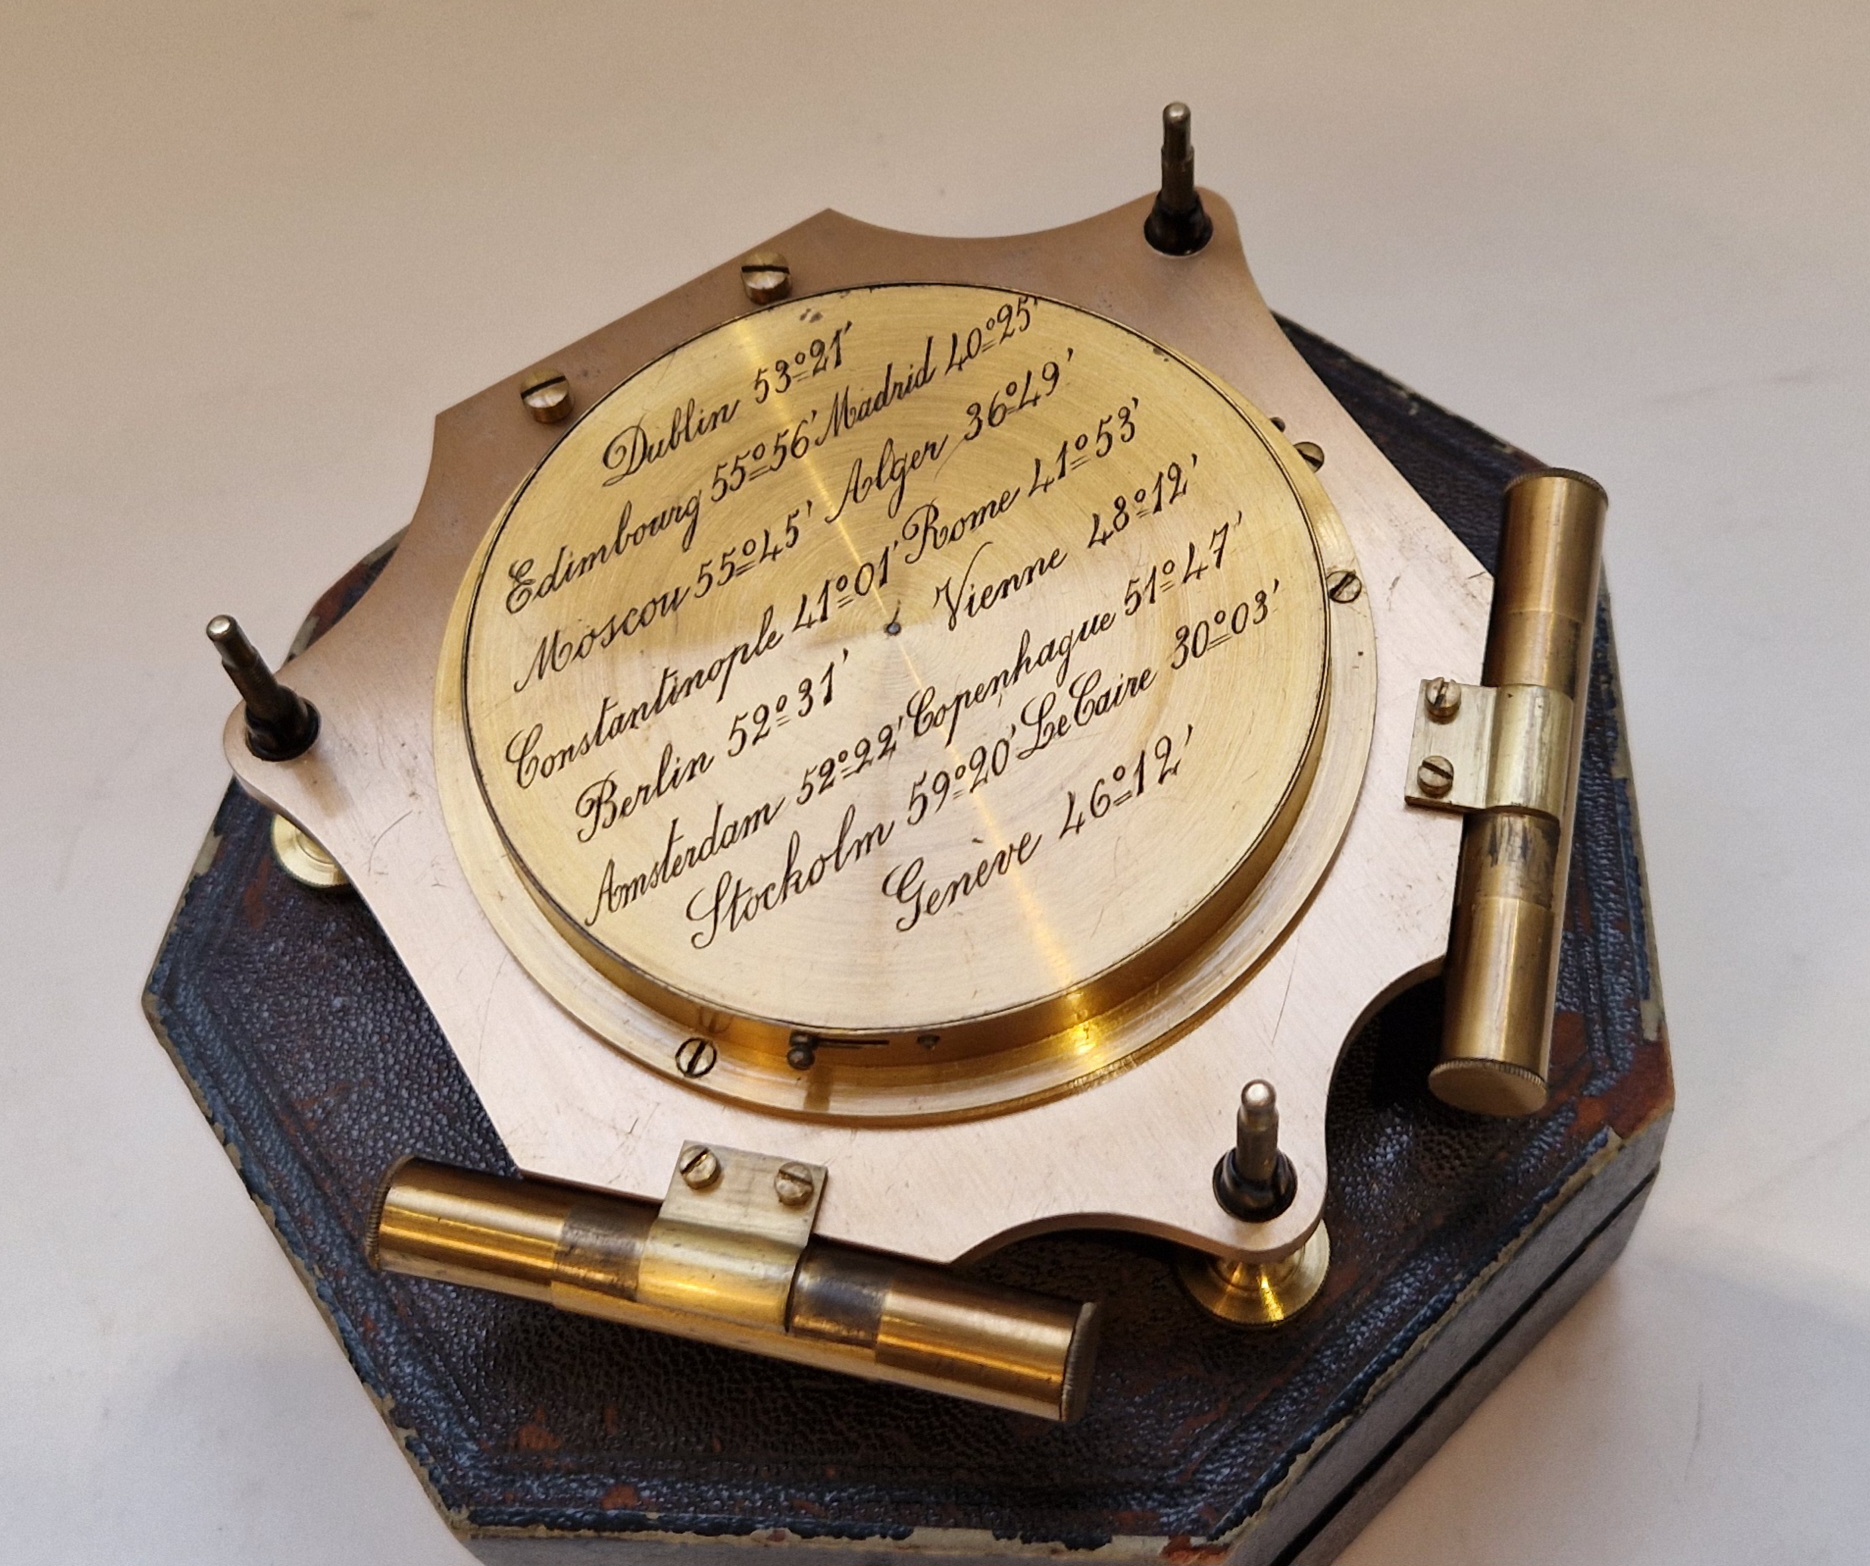 Dublin 53º21'
Edimbourg 55º56' Madrid 40º25'
Moscou 55º45' Alger 36º49'
Constantinople 41º01' Rome 41º53'
Berlin 52º31' Vienne 48º12'
Amsterdam 52º22' Copenhague 51º47'
Stockolm 59º20' Le Caire 30º03'
Genève 46º12'